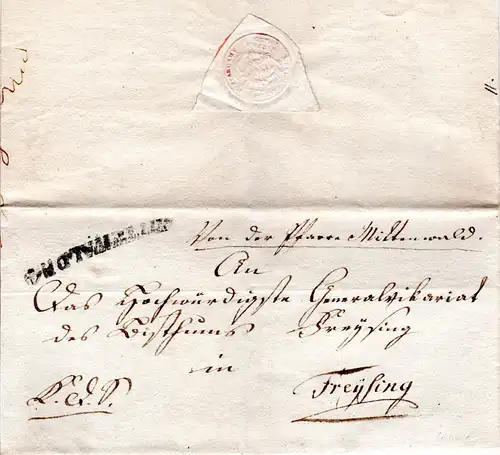 Von der Pfarre Mittenwald.
An
Das Hochwürdigste Generalvikariat
des Bisthums Freysing
in
Freysing
K. d. S.